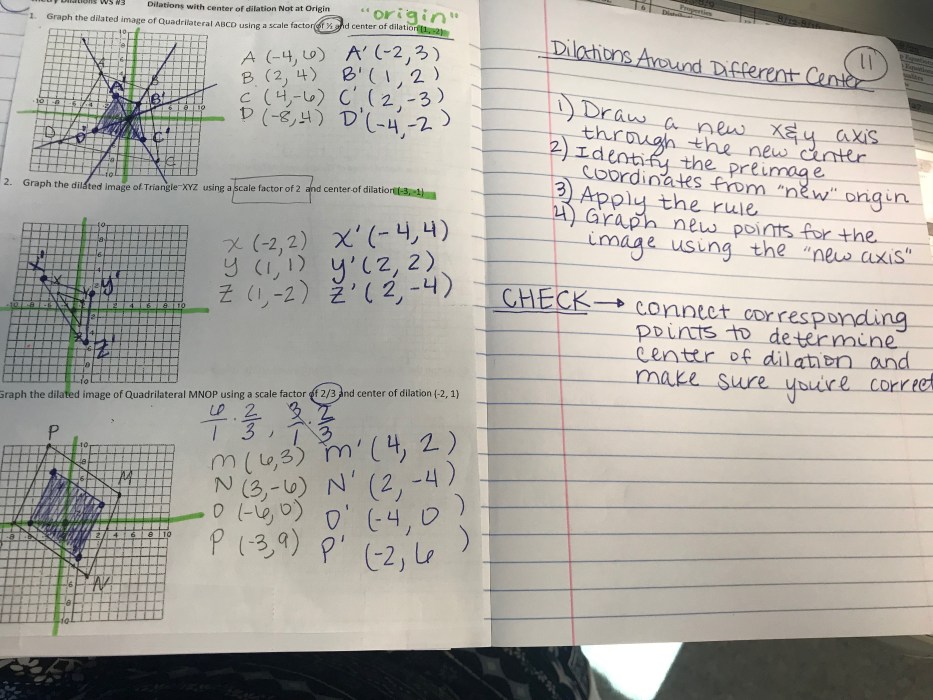 Dilations with center of dilation Not at Origin
"origin"
1. Graph the dilated image of Quadrilateral ABCD using a scale factor of ½ and center of dilation
A (-4,6) A' (-2,3)
B (2,4) B' (1,2)
C (4,-6) C' (2,-3)
D (-8,-4) D' (-4,-2)
2. Graph the dilated image of Triangle XYZ using a scale factor of 2 and center of dilation (-3,-1)
X (-2,2) X' (-4,4)
Y (1,1) Y' (2,2)
Z (1,-2) Z' (2,-4)
Graph the dilated image of Quadrilateral MNOP using a scale factor of 2/3 and center of dilation (-2, 1)
6/1 · 2/3 , 3/1 · 2/3
M (6,3) M' (4,2)
N (3,-6) N' (2,-4)
O (-6,0) O' (-4,0)
P (-3,9) P' (-2,6)
11
Dilations Around Different Center
1) Draw a new x&y axis
through the new center
2) Identify the preimage
coordinates from "new" origin
3) Apply the rule
4) Graph new points for the
image using the "new axis"
CHECK → connect corresponding
points to determine
center of dilation and
make sure you're correct